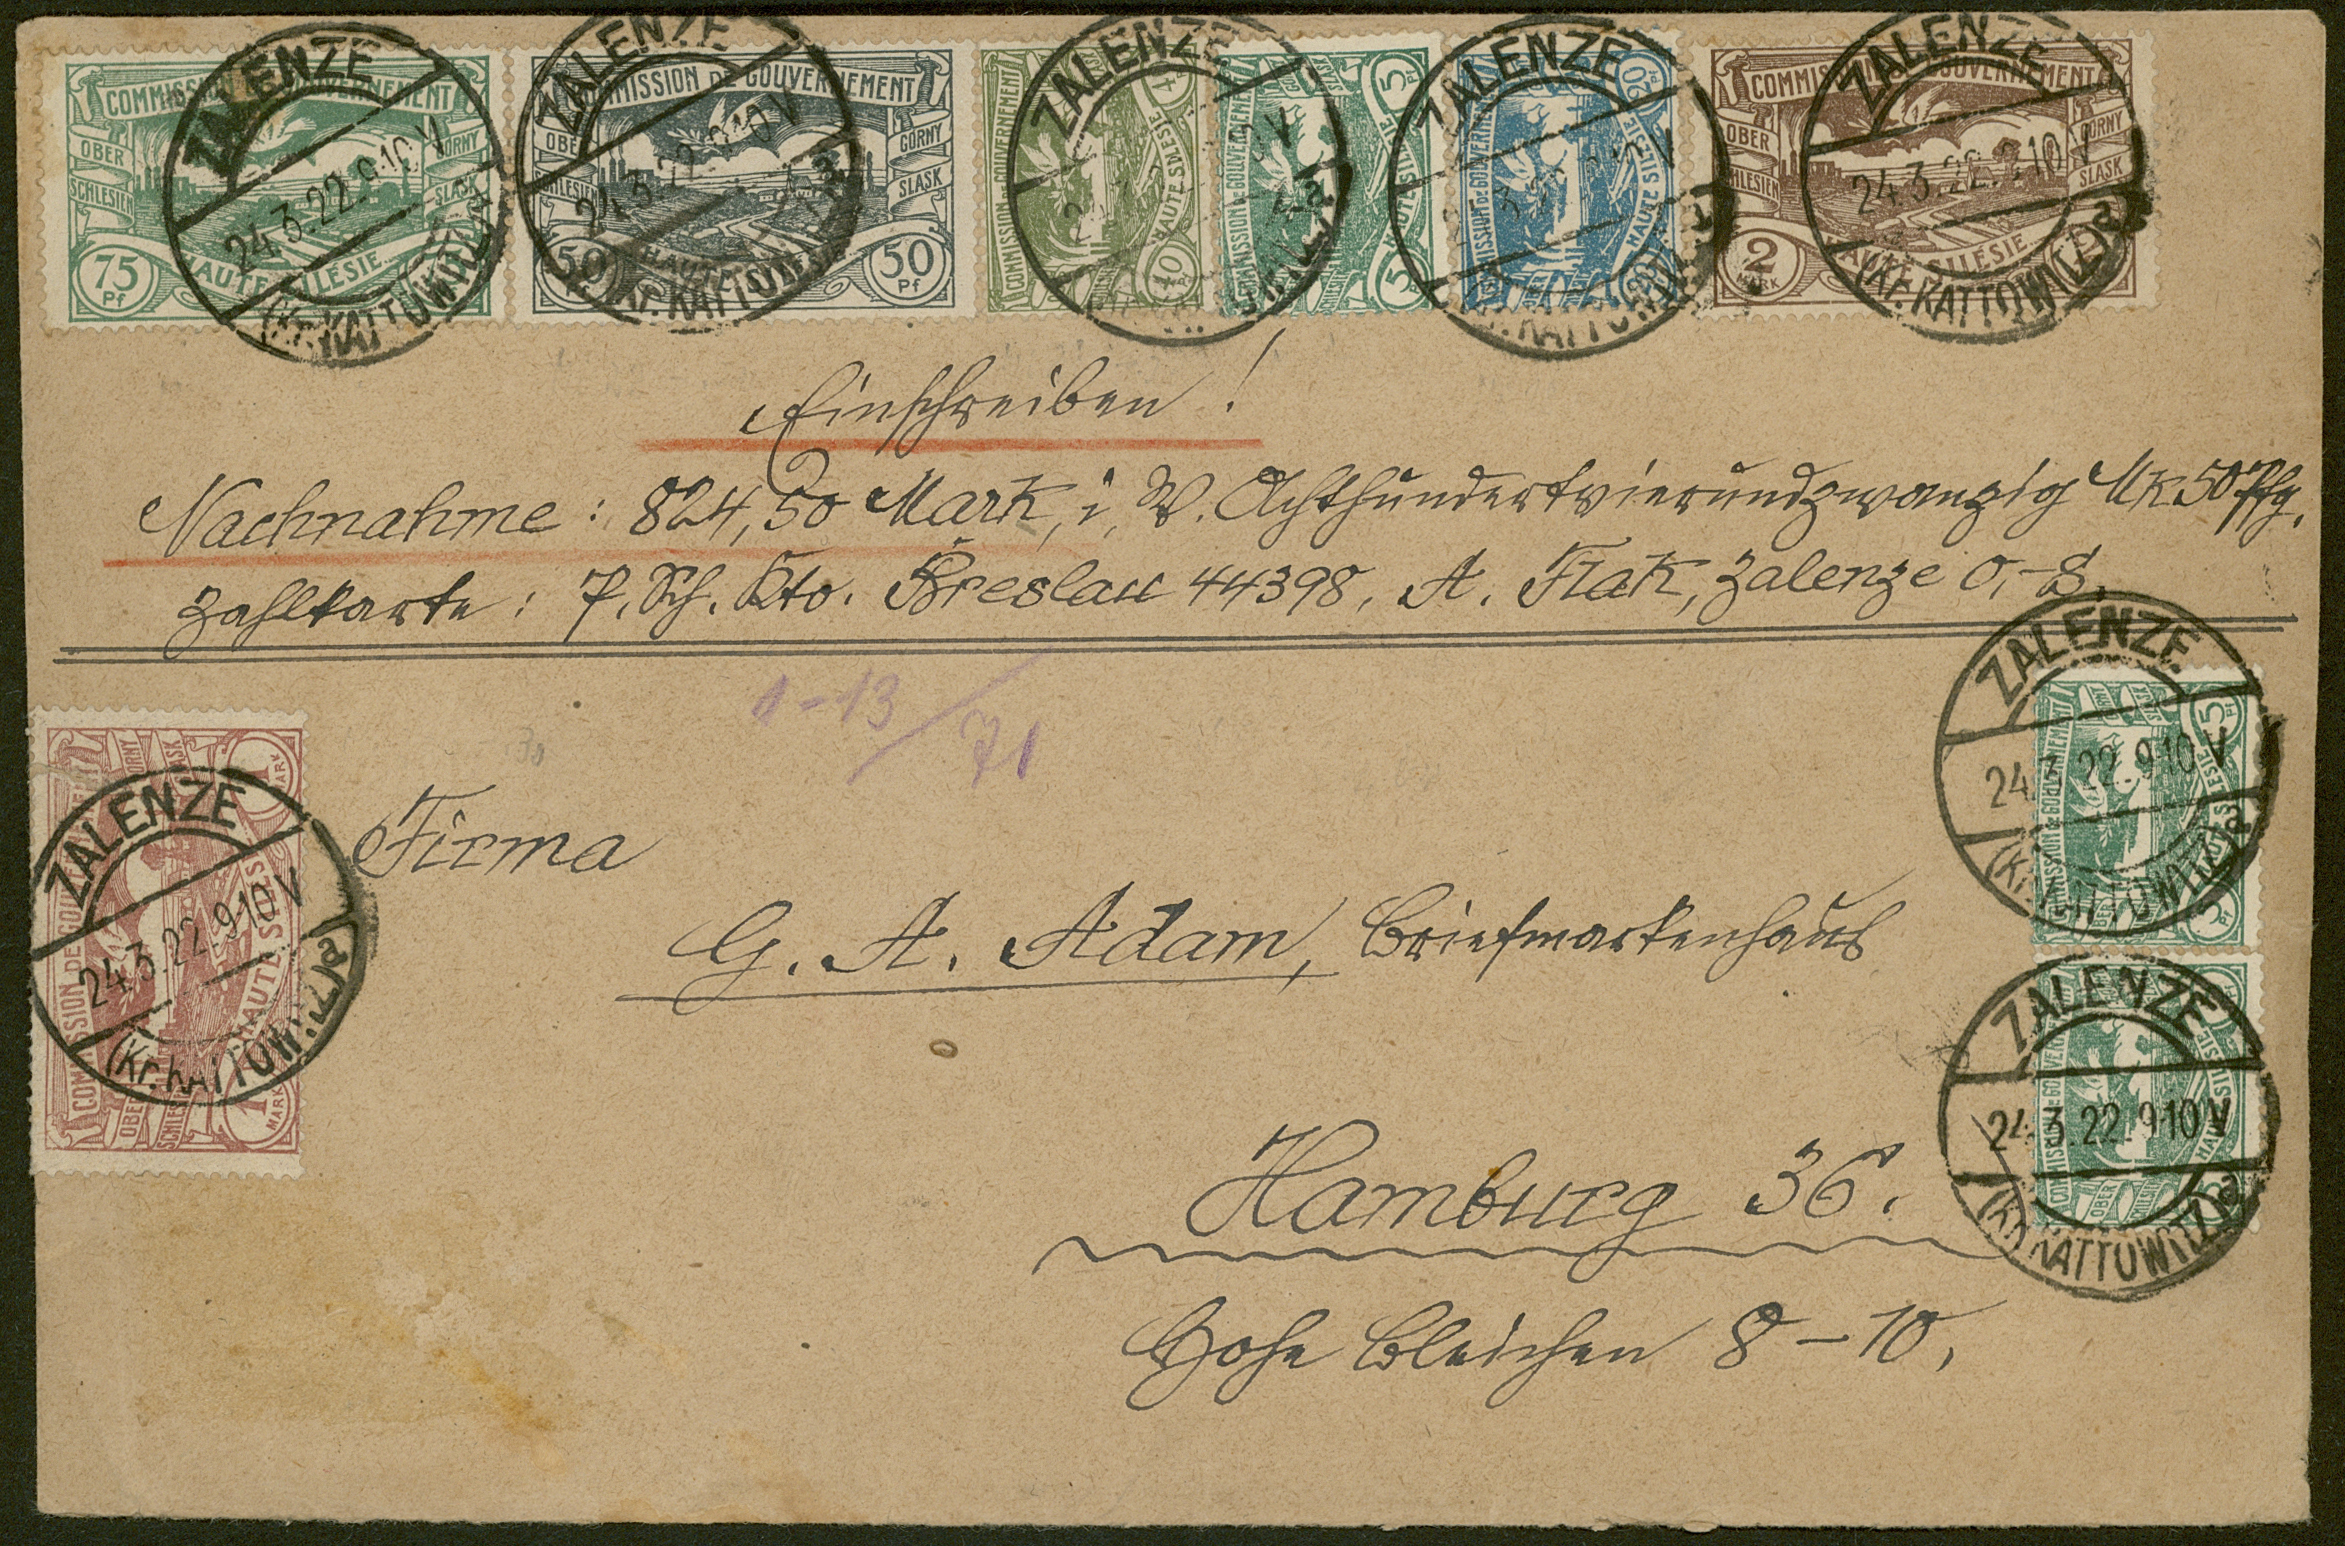 ZALENZE
24.3.22.9-10 V
(Kr. KATTOWITZ) a
COMMISSION DE GOUVERNEMENT
OBER SCHLESIEN
GÓRNY ŚLĄSK
HAUTE SILÉSIE
75 Pf
ZALENZE
24.3.22.9-10 V
(Kr. KATTOWITZ) a
COMMISSION DE GOUVERNEMENT
OBER SCHLESIEN
GÓRNY ŚLĄSK
HAUTE SILÉSIE
50
50 Pf
ZALENZE
COMMISSION DE GOUVERNEMENT
HAUTE SILÉSIE
10
COMMISSION DE GOUVERNEMENT
HAUTE SILÉSIE
5 Pf
5
ZALENZE
(Kr. KATTOWITZ) a
COMMISSION DE GOUVERNEMENT
HAUTE SILÉSIE
20 Pf
20
ZALENZE
24.3.22.9-10 V
(Kr. KATTOWITZ) a
COMMISSION DE GOUVERNEMENT
OBER SCHLESIEN
GÓRNY ŚLĄSK
HAUTE SILÉSIE
2 MARK
Einschreiben!
Nachnahme: 824,50 Mark, i. W. Achthundertvierundzwanzig Mk 50 Pfg.
Zahlkarte: P. Sch. Kto. Breslau 44398, A. Flak, Zalenze O.-S.
1-13/71
ZALENZE
24.3.22.9-10 V
(Kr. KATTOWITZ) a
COMMISSION DE GOUVERNEMENT
HAUTE SILÉSIE
5 Pf
5 Pf
ZALENZE
24.3.22.9-10 V
(Kr. KATTOWITZ) a
COMMISSION DE GOUVERNEMENT
OBER SCHLESIEN
HAUTE SILÉSIE
5
ZALENZE
24.3.22.9-10 V
(Kr. KATTOWITZ) a
COMMISSION DE GOUVERNEMENT
OBER SCHLESIEN
GÓRNY ŚLĄSK
HAUTE SILÉSIE
1 MARK
1 MARK
Firma
G. A. Adam, Briefmarkenhaus
Hamburg 36.
Hohe Bleichen 8-10.